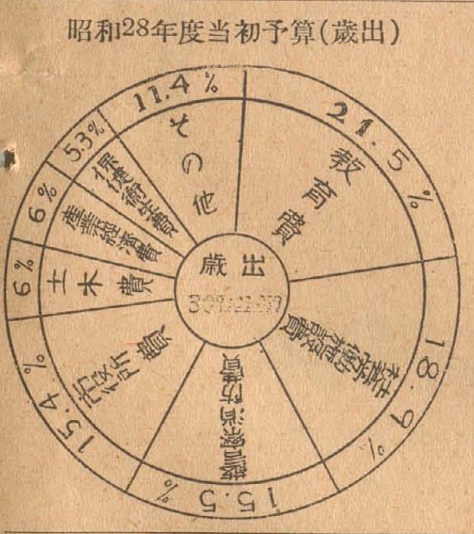 昭和28年度当初予算(歳出)
21.5%
教育費
18.9%
15.5%
警察消防費
15.4%
市役所費
6%
土木費
6%
産業経済費
5.3%
保健衛生費
11.4%
その他
歳出